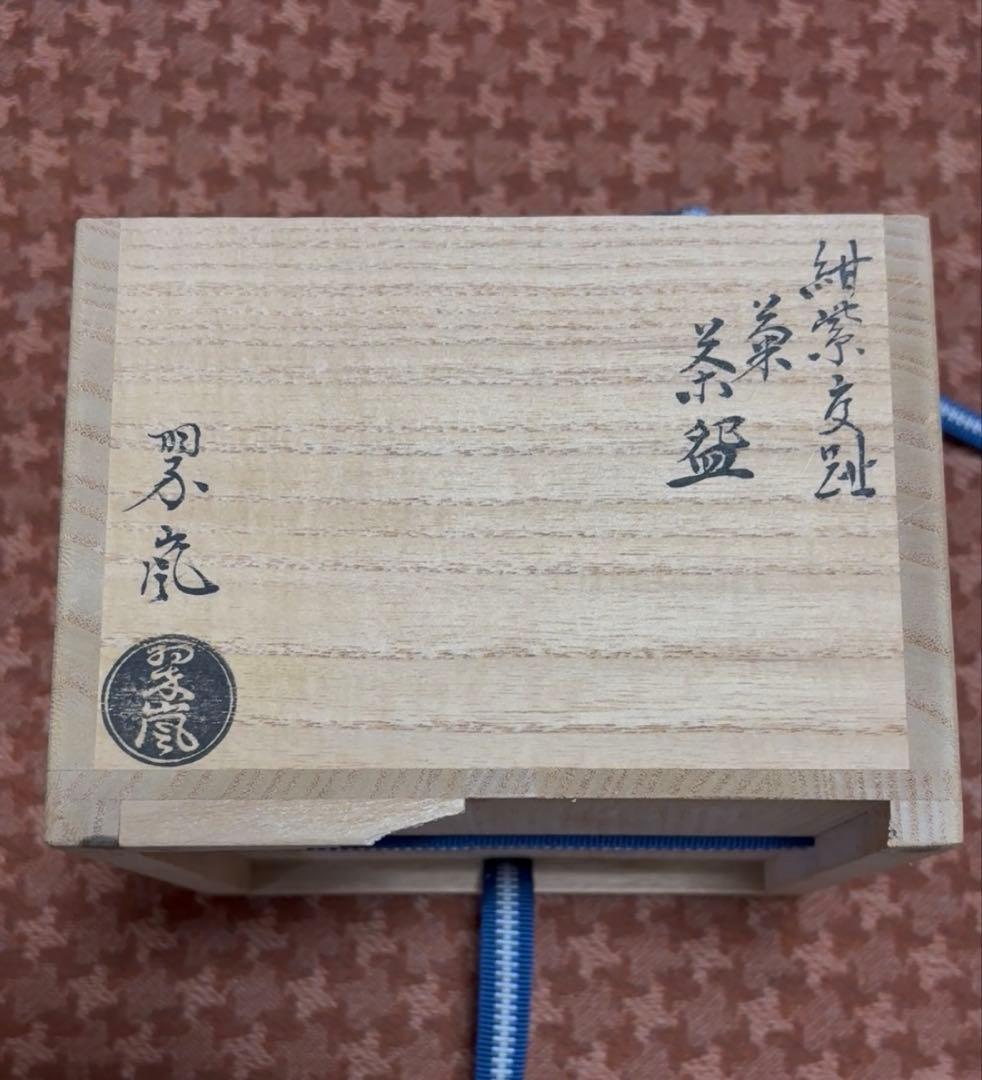 紺紫交趾
菊
茶盌
翠嵐
翠嵐